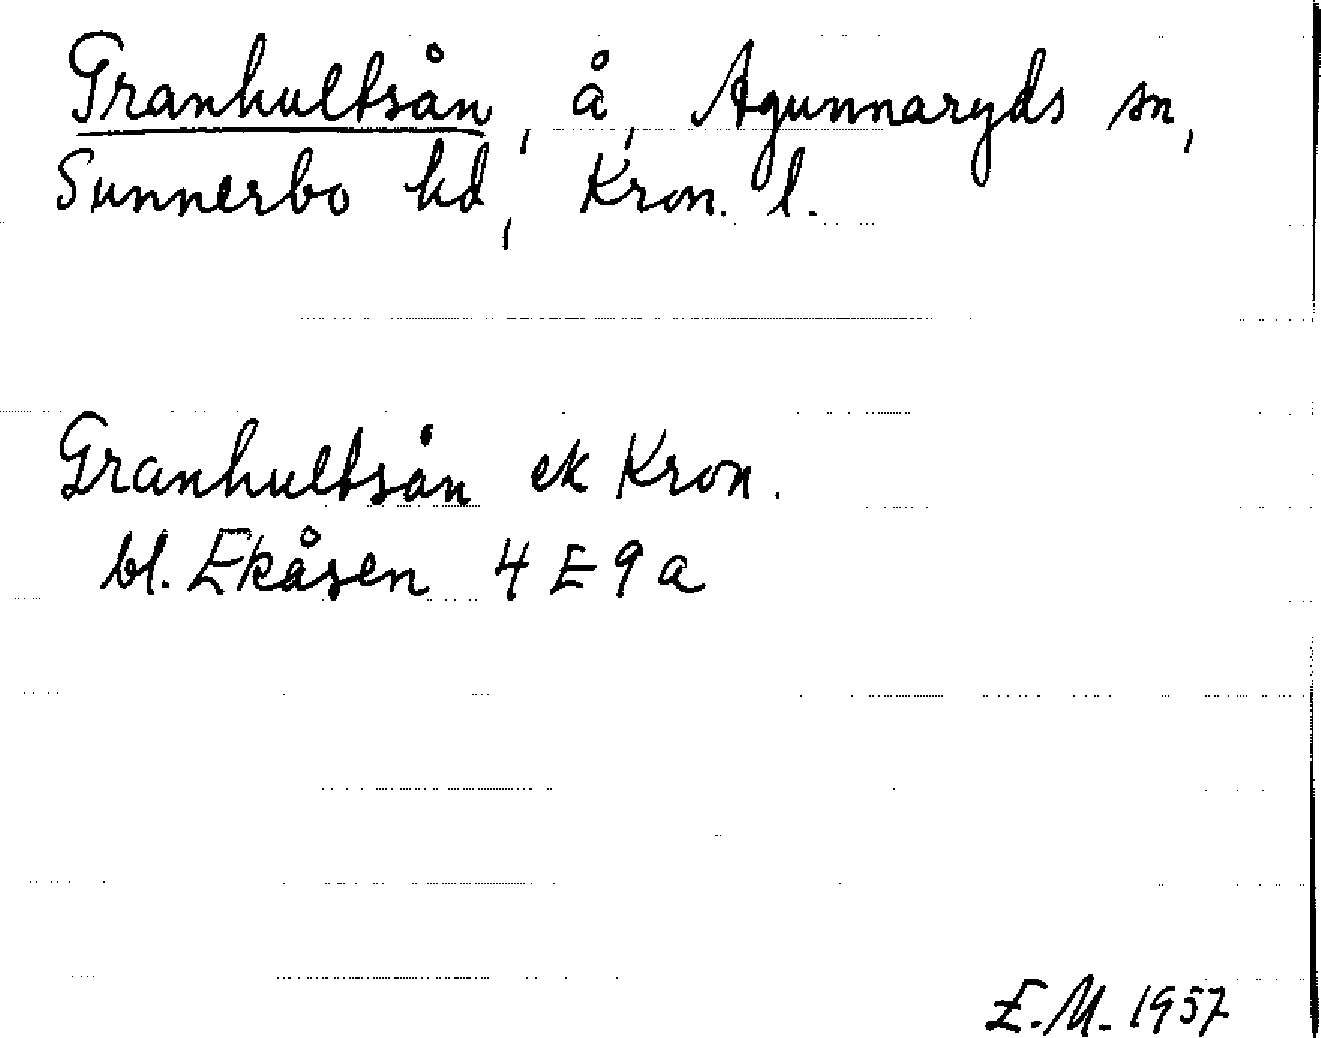 Granhultsån, å, Agunnaryds sn,
Sunnerbo hd, Kron. l.
Granhultsån ek Kron.
bl. Ekåsen 4 E 9 a
E.M. 1957